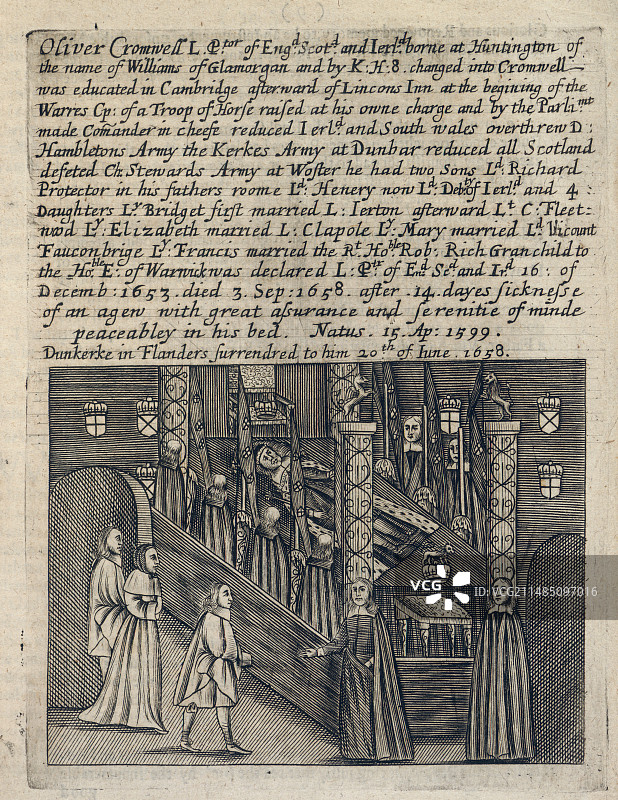 Oliver Cromwell L. P:tor of Eng:d Scot:d and Ierl:d borne at Huntington of
the name of Williams of Glamorgan and by K: H: 8. changed into Cromwell
was educated in Cambridge afterward of Lincons Inn at the begining of the
Warres Cp: of a Troop of Horse raised at his owne charge and by the Parli:mt
made Comander in cheefe reduced Ierl:d and South wales overthrew D:
Hambletons Army the Kerkes Army at Dunbar reduced all Scotland
defeted Ch: Stewards Army at Woster he had two Sons L:d Richard
Protector in his fathers roome L:d: Henery now L:d: Deb:y of Ierl:d and 4:
Daughters L:y Bridget first married L: Ierton afterward L:t C: Fleet-
wod L:y: Elizabeth married L: Clapole L:y: Mary married L:d Vicount
Fauconbrige L:y: Francis married the R:t. Ho:ble Rob: Rich Granchild to
the Ho:ble E: of Warwick was declared L: P:tr of En:d Sc:d and Ir:d 16: of
Decemb: 1653. died 3. Sep: 1658. after .14. dayes sicknesse
of an agew with great assurance and serenitie of minde
peaceabley in his bed. Natus. 15. Ap: 1599.
Dunkerke in Flanders surrendred to him 20th of Iune. 1658.
VCG
ID:VCG211485097016